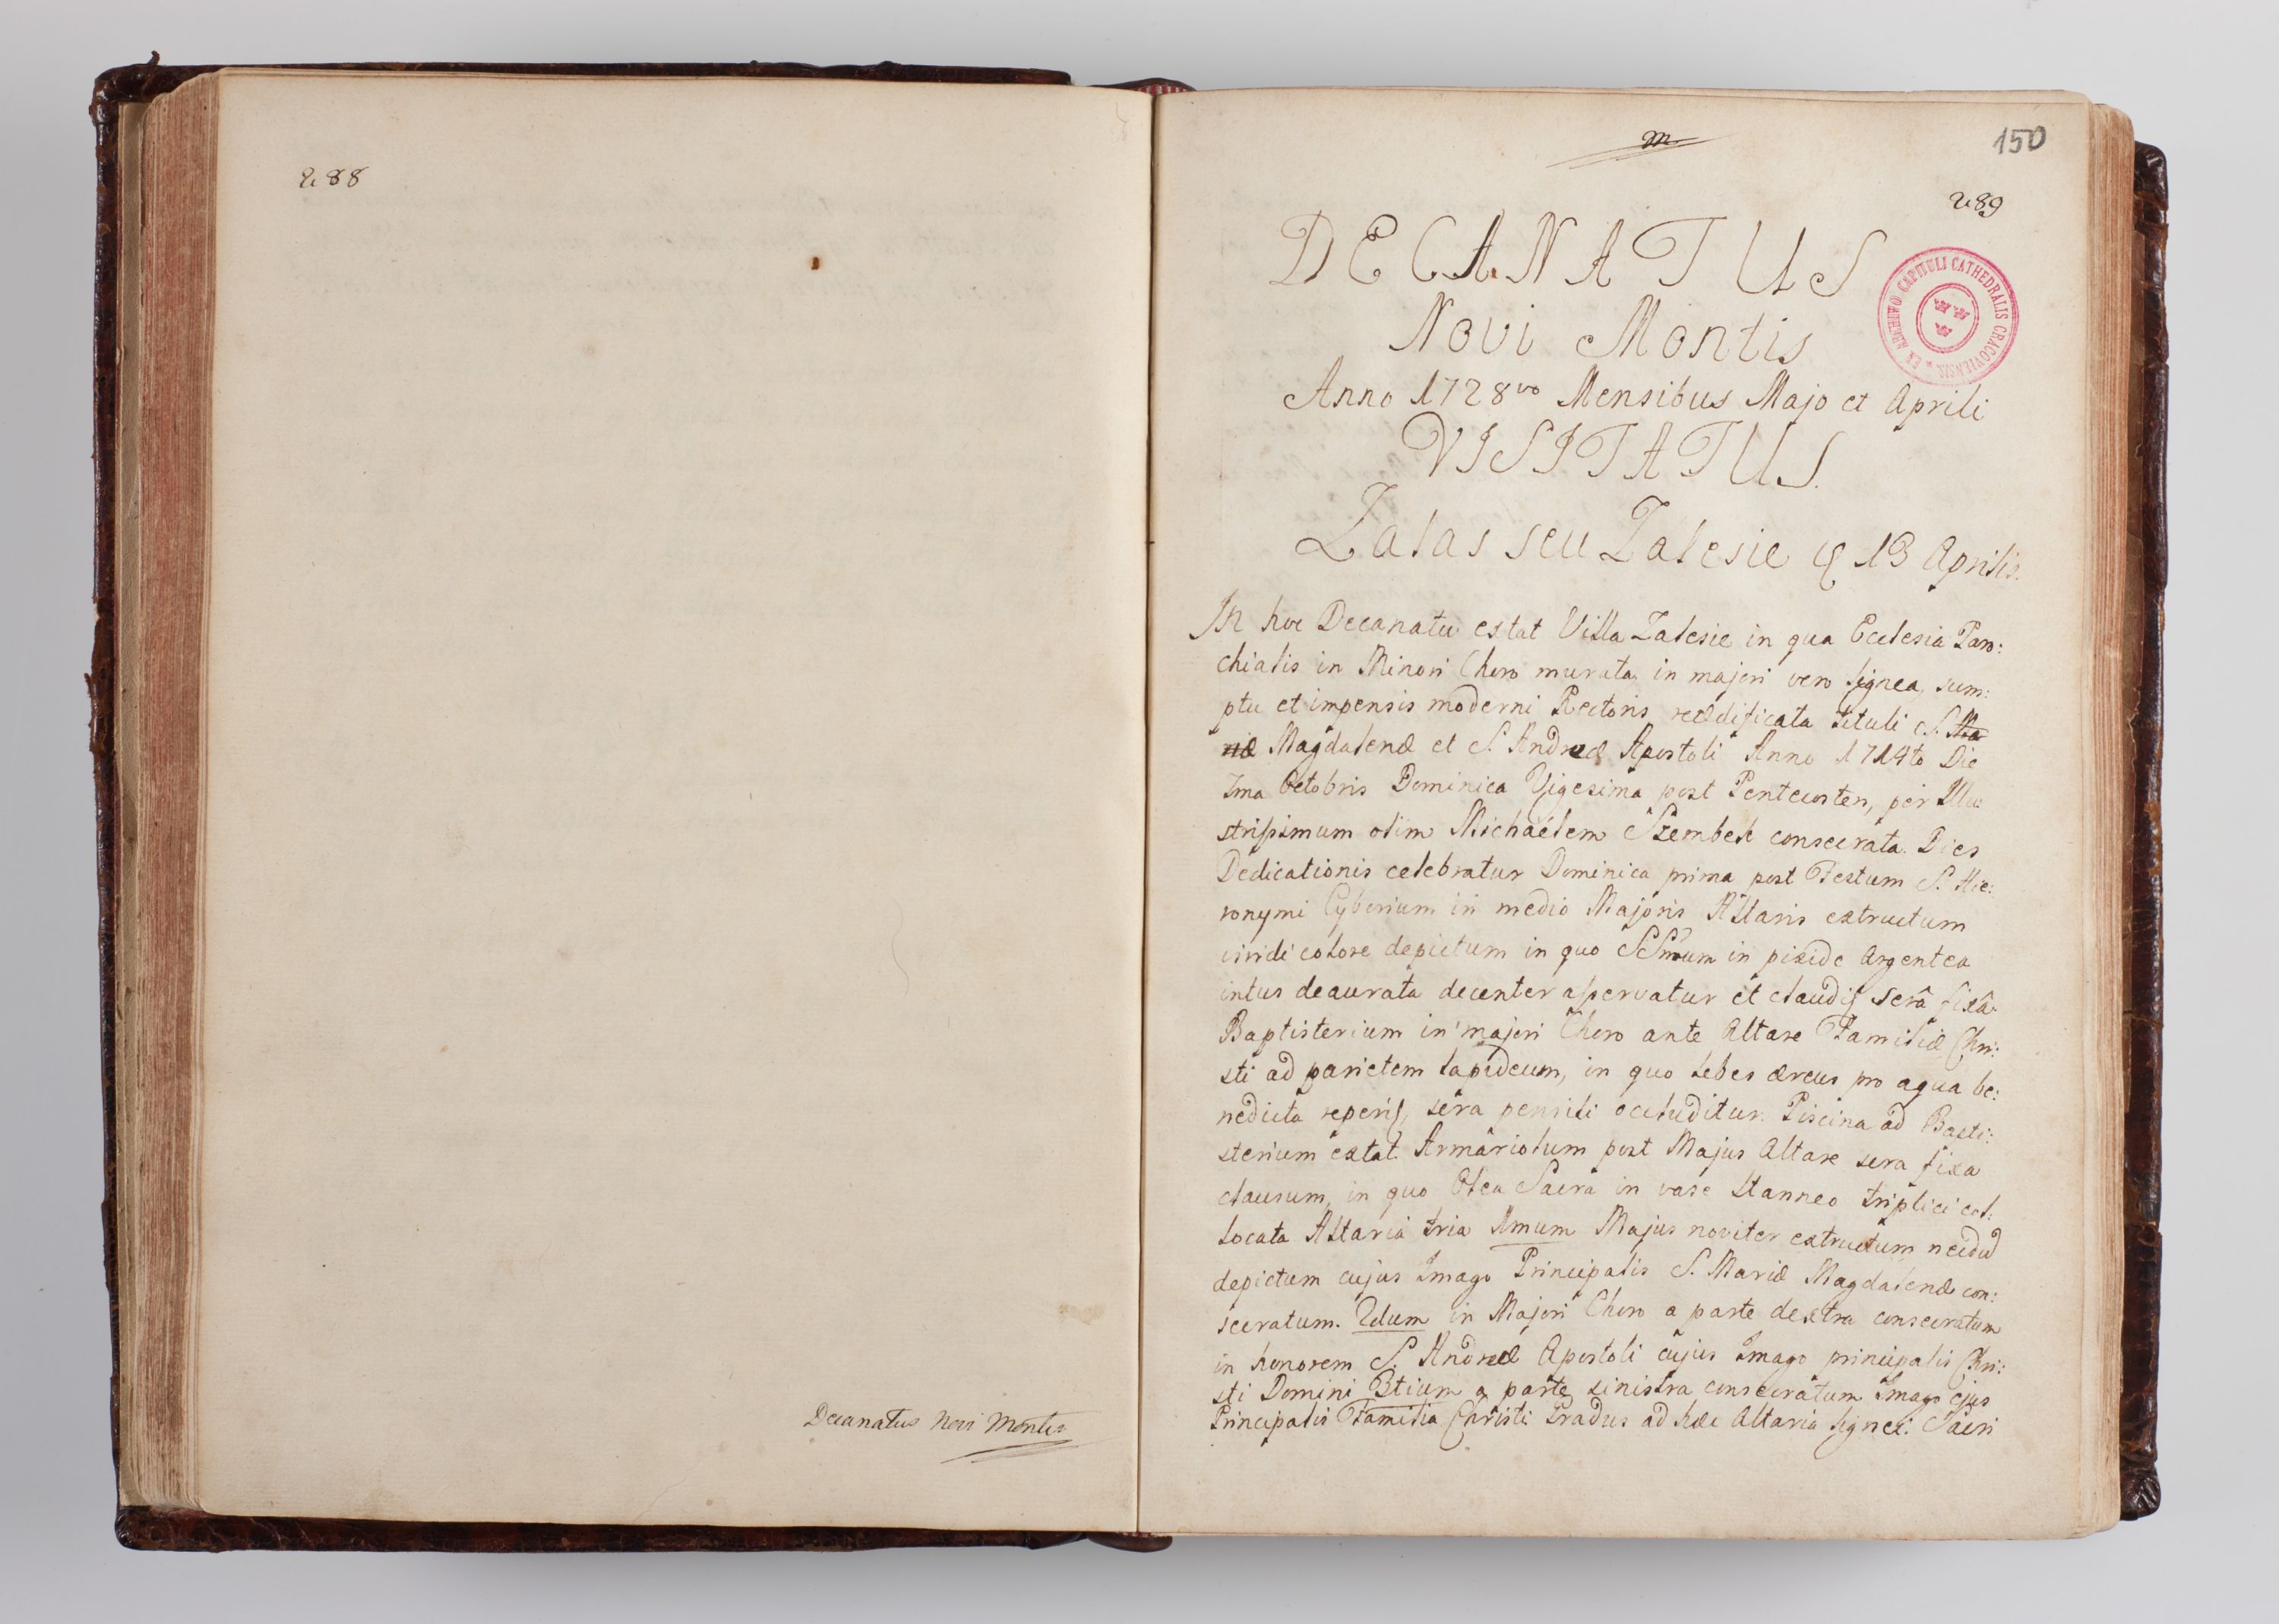 288
Decanatus Novi Montis
m
150
289
DECANATUS
Novi Montis
EX ARCHIVO CAPITULI CATHEDRALIS CRACOVIENSIS
Anno 1728vo Mensibus Majo et Aprili
VISITATUS.
Zalas seu Zalesie 13 Aprilis.
In hoc Decanatu extat Villa Zalesie in qua Ecclesia Paro:
chialis in Minori Choro murata, in majori vero lignea, sum:
ptu et impensis moderni Rectoris reædificata tituli S. Ma
riæ Magdalenæ et S. Andreæ Apostoli Anno 1714to Die
7ma Octobris Dominica Vigesima post Pentecosten, per Illu:
strissimum olim Michaëlem Szembek consecrata. Dies
Dedicationis celebratur Dominica prima post Festum S. Hie:
ronymi Cyborium in medio Majoris Altaris extructum
viridi colore depictum in quo SSmum in pixide Argentea
intus deaurata decenter asservatur et clauditur serâ fixâ.
Baptisterium in majori Choro ante Altare Familiæ Chri:
sti ad parietem lapideum, in quo lebes æreus pro aqua be:
nedicta reperitur, sera pensili occluditur. Piscina ad Bapti:
sterium extat. Armariolum post Majus Altare sera fixa
clausum, in quo Olea Sacra in vase stanneo triplici col:
locata Altaria tria 1mum Majus noviter extructum necdum
depictum cujus Imago Principalis S. Mariæ Magdalenæ con:
secratum. 2dum in Majori Choro a parte dextra consecratum
in honorem S. Andreæ Apostoli cujus Imago principalis Chri:
sti Domini 3tium a parte sinistra consecratum Imago ejus
Principalis Familia Christi Gradus ad hæc Altaria lignei. Sacri